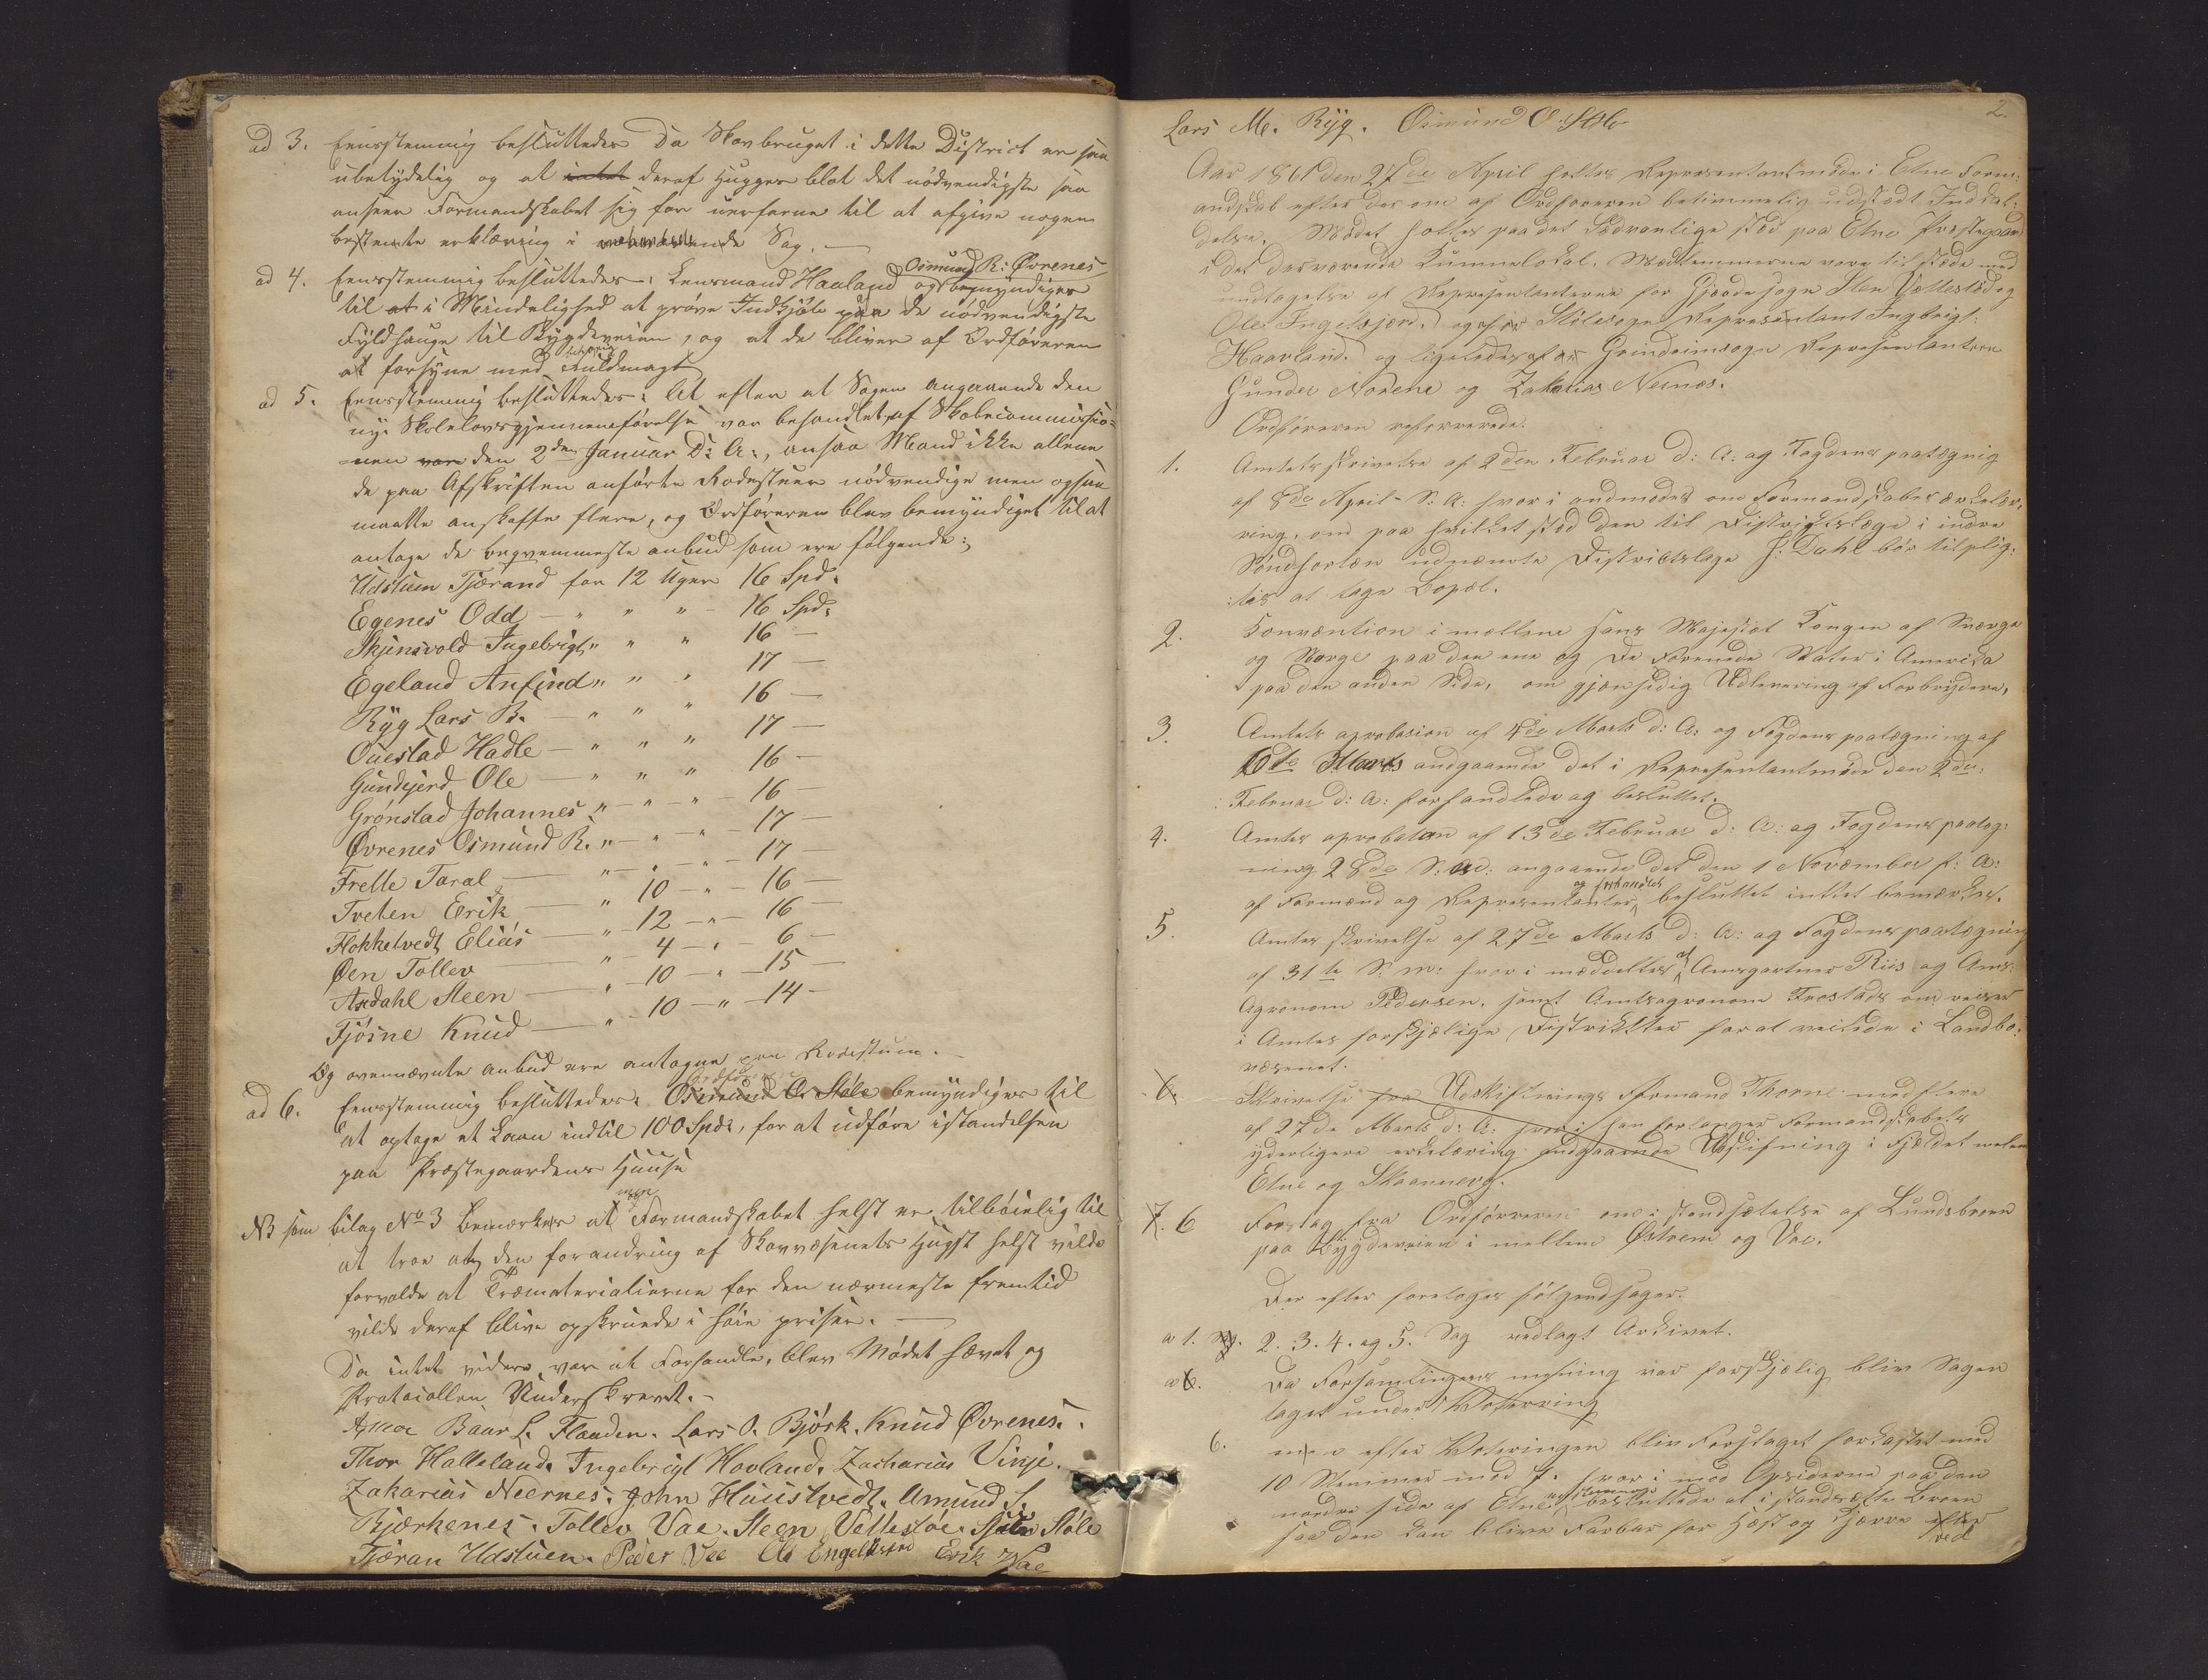 ad 3. Eensstemmig besluttedes Da Skovbruget i dette District er saa
ubetydelig og at intet deraf Hugges blot det nödvendigste saa
anseer Formandskabet sig for uerfarne til at afgive nogen
bestemte erklæring i Sag. —
ad 4. Eensstemmig besluttedes: Lensmand Haaland og Osmund R: Øvrenes bemyndiges
til at i Mindelighed at pröve Indkjöle paa de nödvendigste
Fyldhauge til Bygdeveien, og at de bliver af Ordföreren
at forsyne med fuldmagt
ad 5. Eensstemmig besluttedes: At efter at Sagen angaaende den
nye Skolelovsgjennemförelse var behandlet af Skolecommissio-
nen var den 2den Januar D: A:, ansaa Mand ikke allene
de paa Afskriften anförte Rodestuer nödvendige men ogsaa
maatte anskaffe flere, og Ordföreren blev bemyndiget til at
antage de beqvemmeste anbud som ere fölgende:
Udstuen Tjærand for 12 Uger 16 Spd.
Egenes Odd — " " " — 16 Spd:
Skjensvold Ingebrigt " " " 16 —
Egeland Anfind " " " 17 —
Ryg Lars B. — " " " 16 —
Ouestad Hadle — " " " 17 —
Gundejerd Ole — " " " 16 —
Grönstad Johannes " — " — " — 16 —
Øvrenes Osmund R. " — " — " — 17 —
Frette Taral — " — " — " — 17
Tveten Erik — " 10 — " — 16 —
Flokketvedt Elias — " — 12 — " — 16 —
Øen Tollev — " 4 — " — 6 —
Axdahl Steen — " — 10 — " — 15 —
Fjösne Knud — " — 10 — " — 14 —
Og ovennævnte anbud ere antagne paa Rodestuen. —
ad 6. Eensstemmig besluttedes: Ordföreren Osmund O. Stöle bemyndiges til
at optage et Laan indtil 100 Spd:, for at udföre istandelsen
paa Præstegaardens Huuse
NB som bilag No 3 Bemærkes at Formandskabet helst er tilböielig til
at troe at den forandring af Skovvæsenets Hugst helst vilde
forvolde at Træmaterialierne for den nærmeste fremtid
vilde deraf blive opskruede i höie priser. —
Da intet videre var at Forhandle, blev Mödet hævet og
Protocollen Underskrevet. —
Baar L. Flaaden. Lars O. Björk. Knud Øvrenes.
Thor Halleland. Ingebrigt Hovland. Zacharias Vinje.
Zakarias Neernes. John Huustvedt. Amund S.
Bjærkenes. Tollev Vae. Steen Vettestöe. Stöle
Tjæran Udstuen. Peder Vee Ole Engelkjerd Erik Vae
2.
Lars M. Ryg. Osmund O. Stöle
Aar 1861 den 27de April holtes Repræsentantmöde i Etne Form-
andskab efter der om af Ordföreren betimmelig udstædt Indkal-
delse. Mödet holtes paa det Sedvanlige stæd paa Etne Prestegaard
i det derværende Kummelokal. Medlemmerne vare til stæde med
undtagelse af Repræsentanterne for Gjærde sogn Sten Vettestöe og
Ole Ingelkjærd. og for Stölesogn Repræsentant Ingbrigt
Haavland. og ligeledes for Grindeimsogn Repræsentantern
Gunder Norene og Zakarias Nernes.
Ordföreren refererede.
1. Amtets skrivelse af 2den Februar d: A: og Fogdens paategnig
af 8de April S: A: hvor i andmodes om Formandskabes ærklær-
ring, om paa hvilket stæd den til Distriktslæge i indre
Söndhorlen udnævnte Districtslæge H: Dahl bör tilplig-
tes at tage Bopæl.
2. Konvention i mellem Hans Majestæt Kongen af Sverge
og Norge paa den ene og De Forenede Stater i Amerika
paa den anden Side, om gjensidig Udlevering af Forbrydere,
3. Amtets aprobasion af 4de Marts d: A: og Fogdens paategning af
16te Marts andgaaende det i Repræsentantmöde den 2den
Februar d: A: forhandlede og besluttet.
4. Amtes aprobation af 13de Februar d: A: og Fogdens paateg-
ning 28de S: M: angaaende det den 1 November f: A:
af Formænd og Repræsentanter og forhandlet besluttet inttet bemærket.
5. Amtes skrivelse af 27de Marts d: A: og Fogdens paategning
af 31te S: M: hvor i meddeltes at Amsgartner Riis og Ams-
Agronom Pedersen, samt Amtsagronom Frostads om reiser
i Amtes forskjælige Distrikkter for at veilede i Landbo-
væsenet.
6. Skrivelse fra Udskiftnings Formand Thorne med flere
af 27de Marts d: A: hvor i han forlanger Formandskabets
yderligere erklæring andgaaende Udskifning i Fjeldet melem
Etne og Skaanevig.
7. 6 Forslag fra Ordföreren om i standsettelse af Lundsbroen
paa Bygdeveien i mellem Østrem og Vae.
Der efter foretoges fölgend sager.
a 1. 2. 3. 4. og 5. Sag vedlagt Arkivet.
a 6. Da Forsamlingens mening var forskjælig bliv Sagen
taget under Votering
6. men efter Voteringen bliv Forslaget forkastet med
10 Stemmer mod 7. hvor i mod Opsiderne paa den
nordre side af Etne besluttede at i standsætte Broen
saa den kan blive Farbar for Hest og Kjærre efter
ved